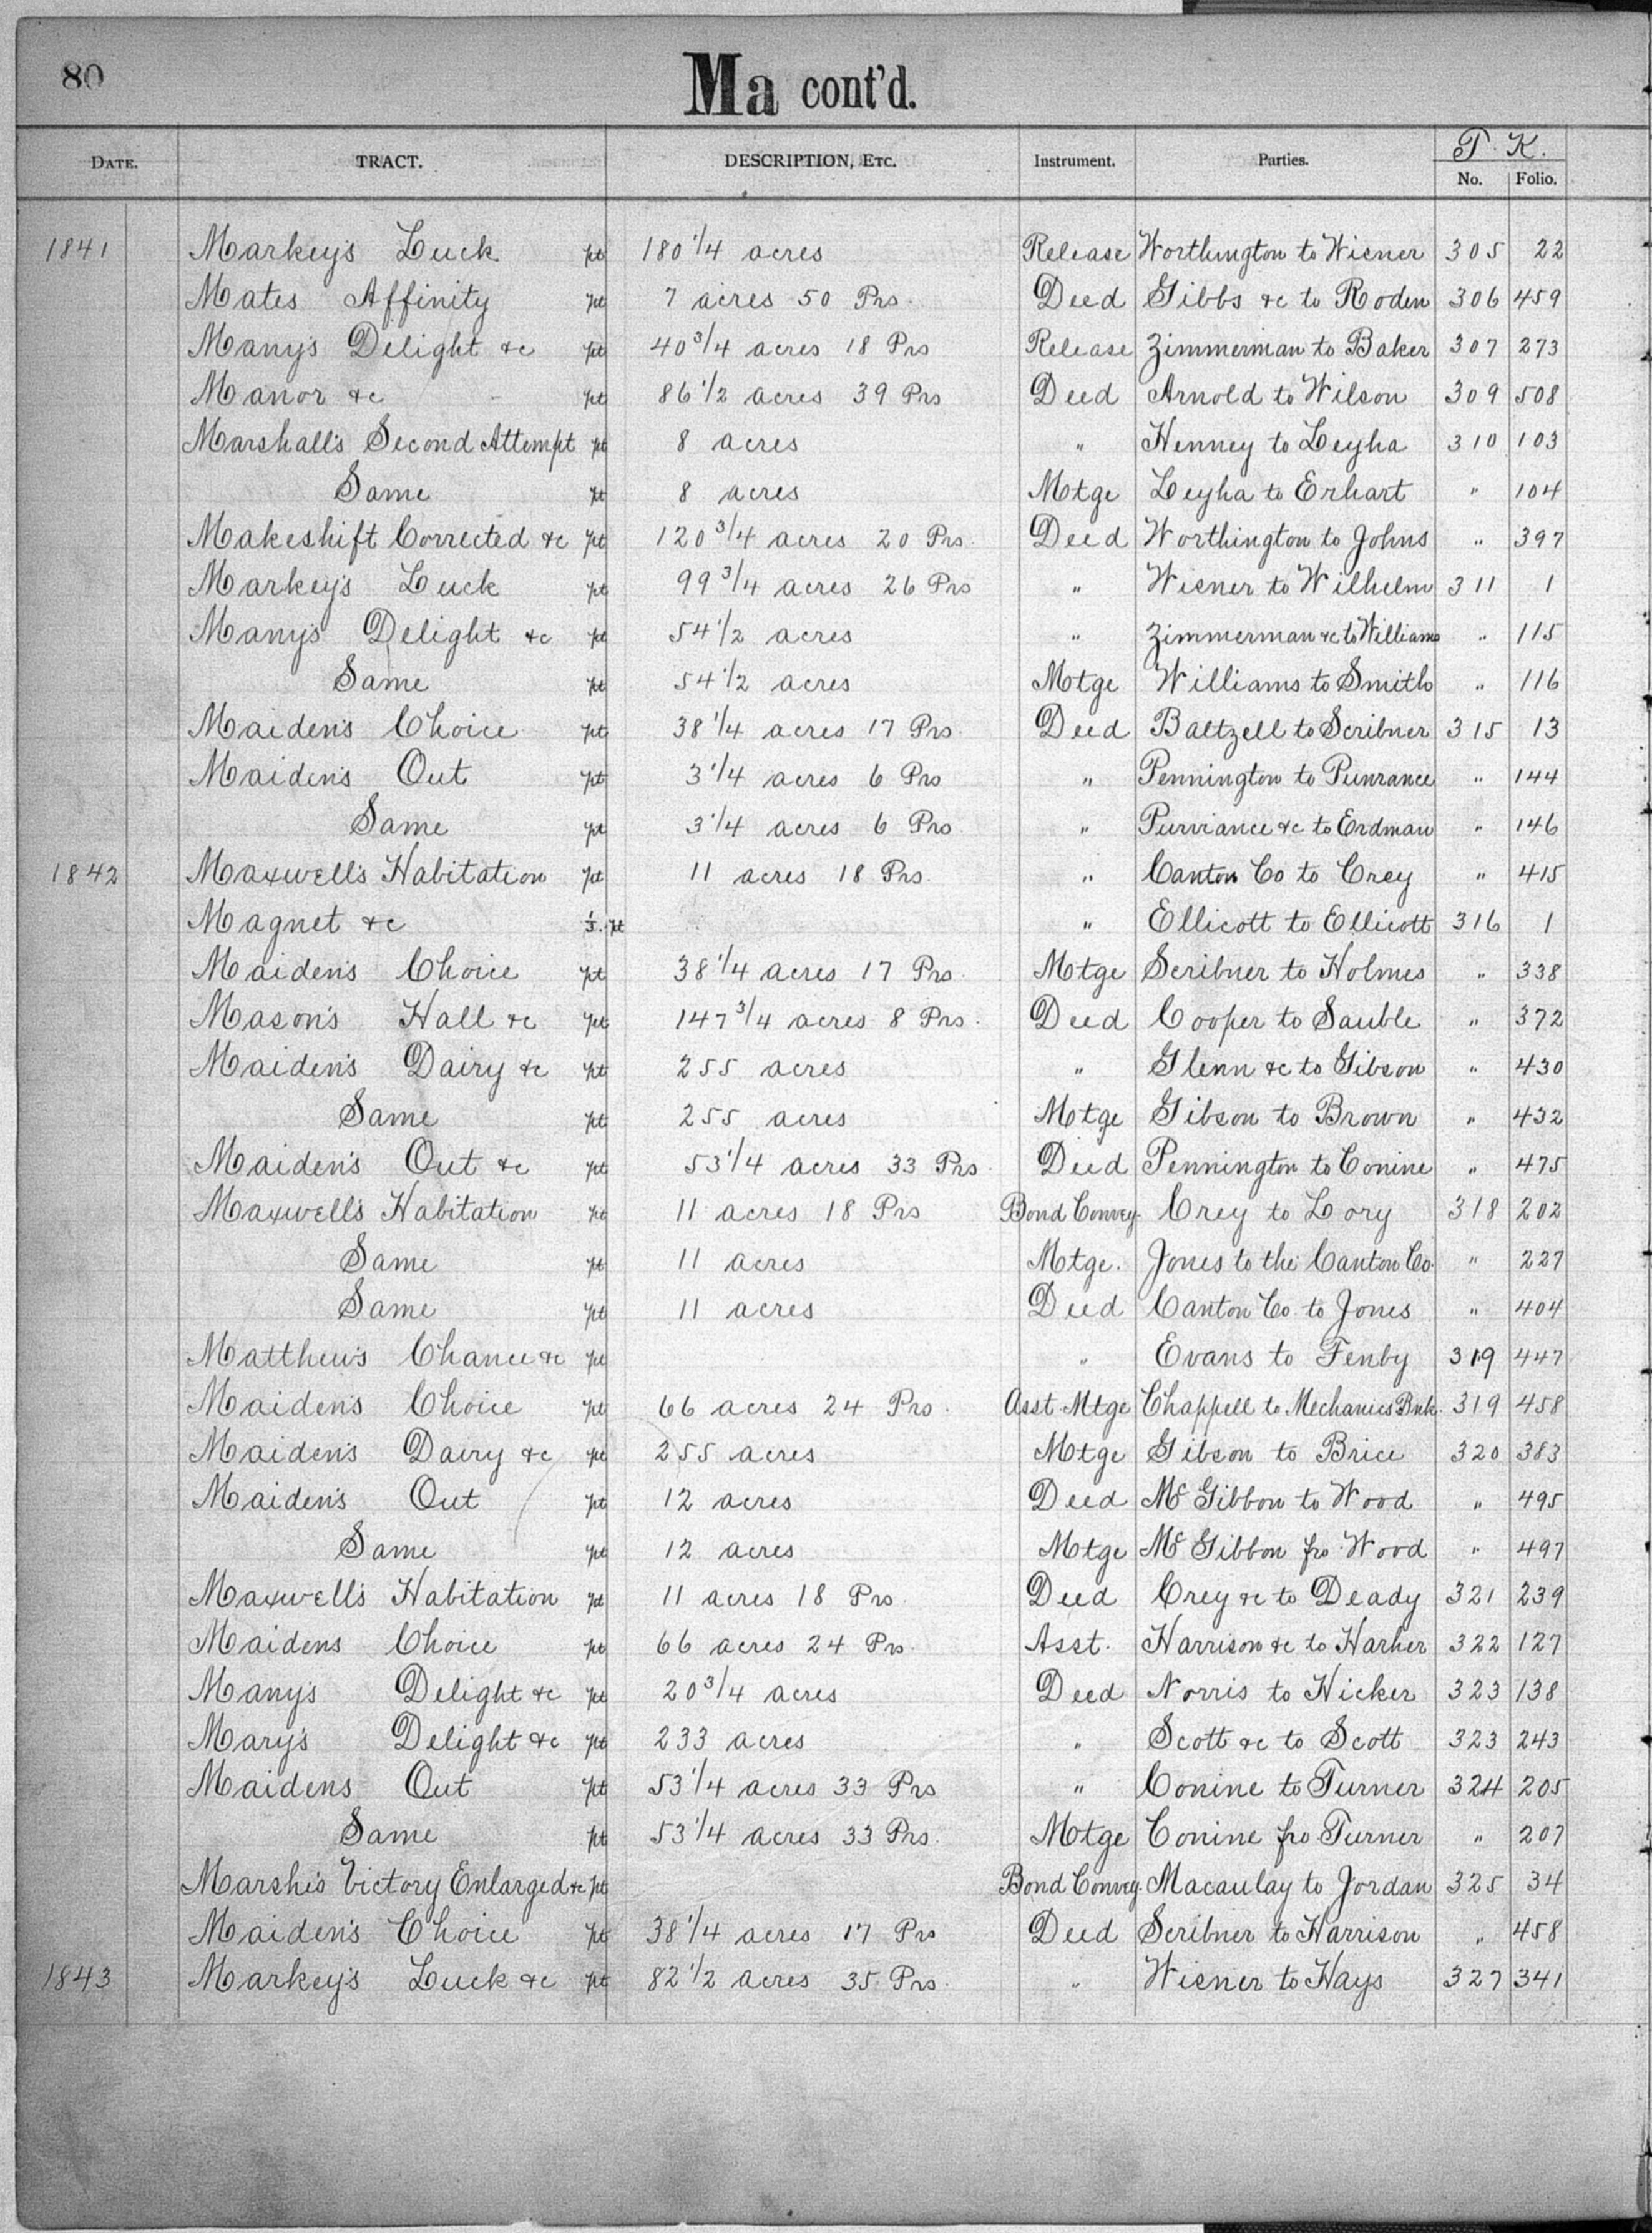 80
Ma cont'd.
DATE. TRACT. DESCRIPTION, ETC. Instrument. Parties. T. K. No. Folio.
1841 Markey's Luck pt 180 1/4 acres Release Worthington to Wisner 305 22
Mates Affinity pt 7 acres 50 Prs. Deed Gibbs &c to Roden 306 459
Many's Delight &c pt 40 3/4 acres 18 Prs Release Zimmerman to Baker 307 273
Manor &c pt 86 1/2 acres 39 Prs Deed Arnold to Wilson 309 508
Marshall's Second Attempt pt 8 acres " Henney to Leyha 310 103
Same pt 8 acres Motge Leyha to Erhart " 104
Makeshift Corrected &c pt 120 3/4 acres 20 Prs. Deed Worthington to Johns " 397
Markey's Luck pt 99 3/4 acres 26 Prs " Wisner to Wilhelm 311 1
Many's Delight &c pt 54 1/2 acres " Zimmerman &c to Williams " 115
Same pt 54 1/2 acres Motge Williams to Smith " 116
Maiden's Choice pt 38 1/4 acres 17 Prs. Deed Baltzell to Scribner 315 13
Maiden's Out pt 3 1/4 acres 6 Prs " Pennington to Punrance " 144
Same pt 3 1/4 acres 6 Prs " Purviance &c to Erdman " 146
1842 Maxwell's Habitation pt 11 acres 18 Prs. " Canton Co to Crey " 415
Magnet &c pt " Ellicott to Ellicott 316 1
Maiden's Choice pt 38 1/4 acres 17 Prs. Motge Scribner to Holmes " 338
Mason's Hall &c pt 147 3/4 acres 8 Prs. Deed Cooper to Sauble " 372
Maiden's Dairy &c pt 255 acres " Glenn &c to Gibson " 430
Same pt 255 acres Motge Gibson to Brown " 432
Maiden's Out &c pt 53 1/4 acres 33 Prs. Deed Pennington to Conine " 475
Maxwell's Habitation pt 11 acres 18 Prs Bond Convey. Crey to Lory 318 202
Same pt 11 acres Motge. Jones to the Canton Co. " 227
Same pt 11 acres Deed Canton Co to Jones " 404
Matthew's Chance &c pt " Evans to Fenby 319 447
Maiden's Choice pt 66 acres 24 Prs. Asst Mtge Chappell to Mechanics Bnk. 319 458
Maiden's Dairy &c pt 255 acres Motge Gibson to Brice 320 383
Maiden's Out pt 12 acres Deed Mc Gibbon to Wood " 495
Same pt 12 acres Motge Mc Gibbon fro Wood " 497
Maxwell's Habitation pt 11 acres 18 Prs. Deed Crey &c to Deady 321 239
Maidens Choice pt 66 acres 24 Prs. Asst. Harrison &c to Harker 322 127
Many's Delight &c pt 20 3/4 acres Deed Norris to Hicker 323 138
Mary's Delight &c pt 233 acres " Scott &c to Scott 323 243
Maidens Out pt 53 1/4 acres 33 Prs " Conine to Turner 324 205
Same pt 53 1/4 acres 33 Prs. Motge Conine fro Turner " 207
Marsh's Victory Enlarged &c pt Bond Convey. Macaulay to Jordan 325 34
Maiden's Choice pt 38 1/4 acres 17 Prs Deed Scribner to Harrison " 458
1843 Markey's Luck &c pt 82 1/2 acres 35 Prs. " Wisner to Hays 327 341